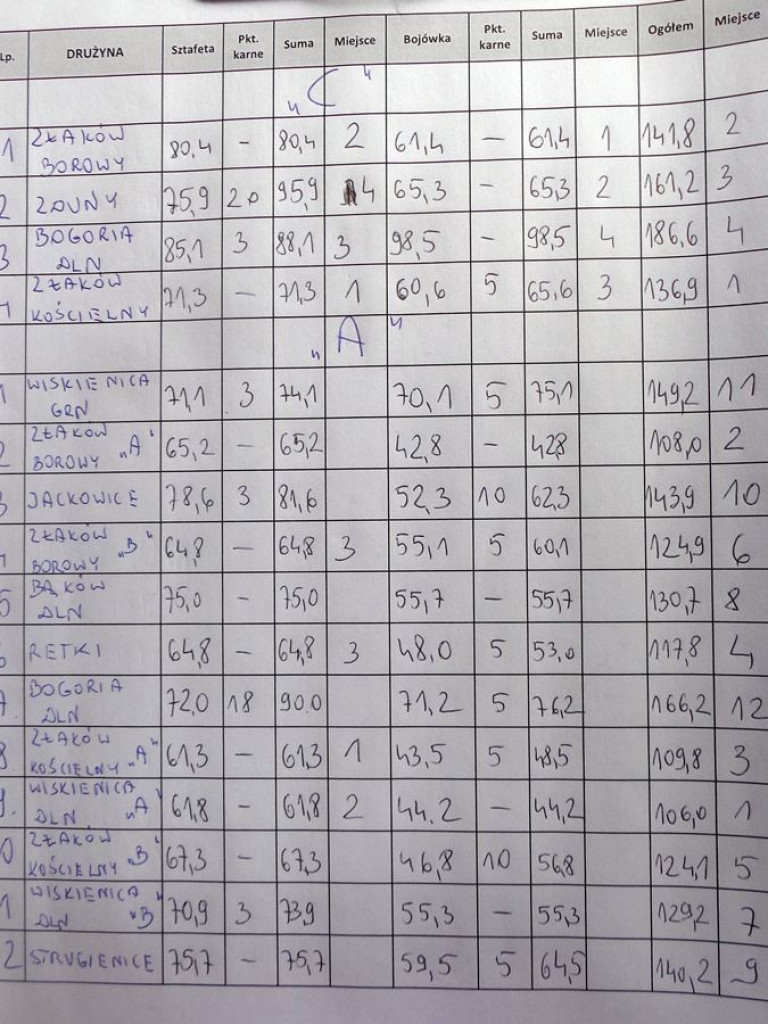 Lp. DRUŻYNA Sztafeta Pkt. karne Suma Miejsce Bojówka Pkt. karne Suma Miejsce Ogółem Miejsce
„C"
1 ZŁAKÓW BOROWY 80,4 - 80,4 2 61,4 - 61,4 1 141,8 2
2 ZDUNY 75,9 20 95,9 4 65,3 - 65,3 2 161,2 3
3 BOGORIA DLN 85,1 3 88,1 3 98,5 - 98,5 4 186,6 4
4 ZŁAKÓW KOŚCIELNY 71,3 - 71,3 1 60,6 5 65,6 3 136,9 1
„A"
1 WISKIENICA GRN 71,1 3 74,1 70,1 5 75,1 149,2 11
2 ZŁAKÓW BOROWY „A" 65,2 - 65,2 42,8 - 42,8 108,0 2
3 JACKOWICE 78,6 3 81,6 52,3 10 62,3 143,9 10
4 ZŁAKÓW BOROWY „B" 64,8 - 64,8 3 55,1 5 60,1 124,9 6
5 BĄKÓW DLN 75,0 - 75,0 55,7 - 55,7 130,7 8
6 RETKI 64,8 - 64,8 3 48,0 5 53,0 117,8 4
7. BOGORIA DLN 72,0 18 90,0 71,2 5 76,2 166,2 12
8. ZŁAKÓW KOŚCIELNY „A" 61,3 - 61,3 1 43,5 5 48,5 109,8 3
9. WISKIENICA DLN „A" 61,8 - 61,8 2 44,2 - 44,2 106,0 1
0 ZŁAKÓW KOŚCIELNY „B" 67,3 - 67,3 46,8 10 56,8 124,1 5
1 WISKIENICA DLN "B" 70,9 3 73,9 55,3 - 55,3 129,2 7
2 STRUGIENICE 75,7 - 75,7 59,5 5 64,5 140,2 9